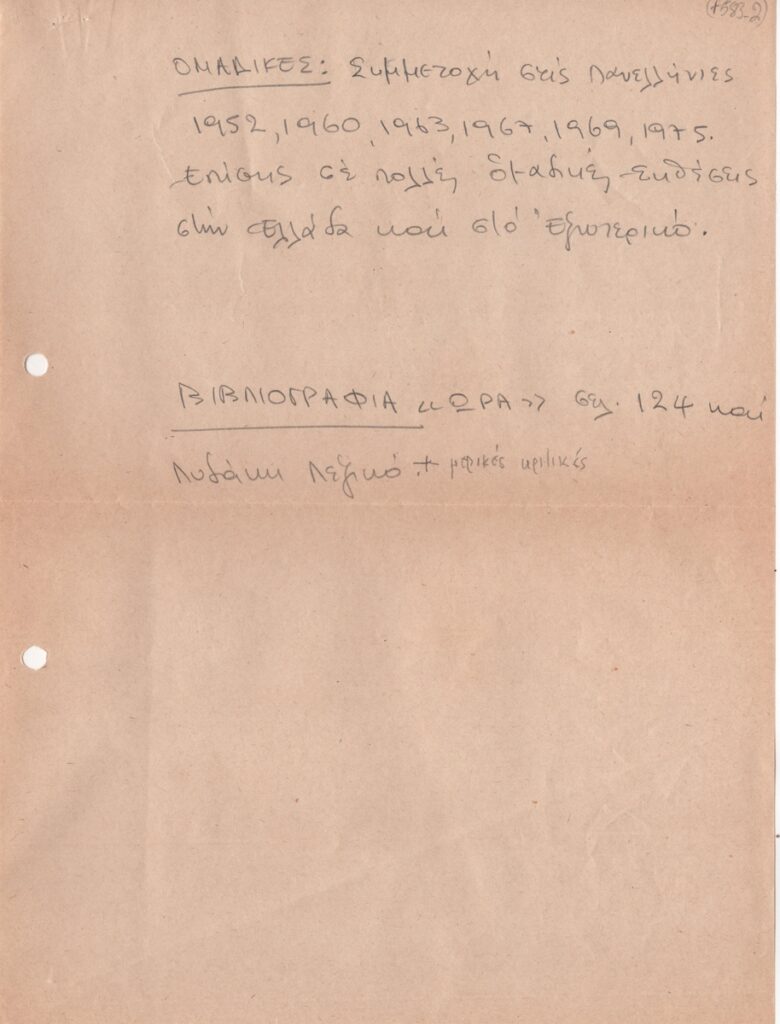 (+583-2)
ΟΜΑΔΙΚΕΣ: Συμμετοχή στίς Πανελλήνιες
1952, 1960, 1963, 1967, 1969, 1975.
Επίσης σέ πολλές ὁμαδικές Εκθέσεις
στήν Ελλάδα καί στό Ἐξωτερικό.
ΒΙΒΛΙΟΓΡΑΦΙΑ «ΩΡΑ» σελ. 124 καί
Λυδάκη Λεξικό. + μερικές κριτικές